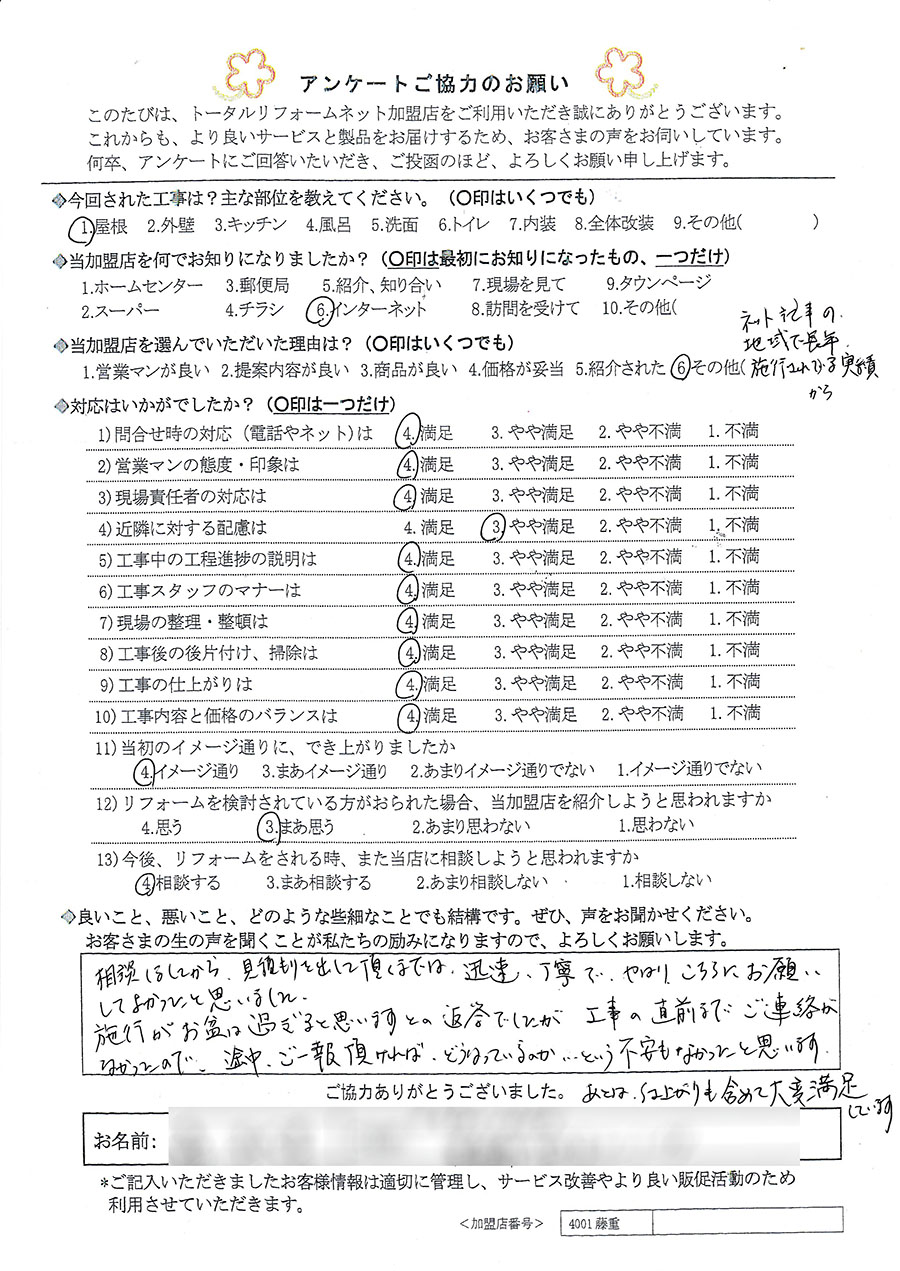 アンケートご協力のお願い
このたびは、トータルリフォームネット加盟店をご利用いただき誠にありがとうございます。
これからも、より良いサービスと製品をお届けするため、お客さまの声をお伺いしています。
何卒、アンケートにご回答いたいだき、ご投函のほど、よろしくお願い申し上げます。
◆今回された工事は？主な部位を教えてください。（〇印はいくつでも）
1.屋根 2.外壁 3.キッチン 4.風呂 5.洗面 6.トイレ 7.内装 8.全体改装 9.その他( )
◆当加盟店を何でお知りになりましたか？（〇印は最初にお知りになったもの、一つだけ）
1.ホームセンター 3.郵便局 5.紹介、知り合い 7.現場を見て 9.タウンページ
2.スーパー 4.チラシ 6.インターネット 8.訪問を受けて 10.その他(
◆当加盟店を選んでいただいた理由は？（〇印はいくつでも）
1.営業マンが良い 2.提案内容が良い 3.商品が良い 4.価格が妥当 5.紹介された 6.その他(
ネット記事の
地域で長年
施行されている実績
から
◆対応はいかがでしたか？（〇印は一つだけ）
1)問合せ時の対応（電話やネット)は 4.満足 3.やや満足 2.やや不満 1.不満
2)営業マンの態度・印象は 4.満足 3.やや満足 2.やや不満 1.不満
3)現場責任者の対応は 4.満足 3.やや満足 2.やや不満 1.不満
4)近隣に対する配慮は 4.満足 3.やや満足 2.やや不満 1.不満
5)工事中の工程進捗の説明は 4.満足 3.やや満足 2.やや不満 1.不満
6)工事スタッフのマナーは 4.満足 3.やや満足 2.やや不満 1.不満
7)現場の整理・整頓は 4.満足 3.やや満足 2.やや不満 1.不満
8)工事後の後片付け、掃除は 4.満足 3.やや満足 2.やや不満 1.不満
9)工事の仕上がりは 4.満足 3.やや満足 2.やや不満 1.不満
10)工事内容と価格のバランスは 4.満足 3.やや満足 2.やや不満 1.不満
11)当初のイメージ通りに、でき上がりましたか
4.イメージ通り 3.まあイメージ通り 2.あまりイメージ通りでない 1.イメージ通りでない
12)リフォームを検討されている方がおられた場合、当加盟店を紹介しようと思われますか
4.思う 3.まあ思う 2.あまり思わない 1.思わない
13)今後、リフォームをされる時、また当店に相談しようと思われますか
4.相談する 3.まあ相談する 2.あまり相談しない 1.相談しない
◆良いこと、悪いこと、どのような些細なことでも結構です。ぜひ、声をお聞かせください。
お客さまの生の声を聞くことが私たちの励みになりますので、よろしくお願いします。
相談してから、見積もりを出して頂くまでは、迅速、丁寧で、やはり、お願い
してよかったと思いました。
施行がお盆は過ぎると思いますとの返答でしたが 工事の直前までご連絡が
なかったので、途中、ご一報頂ければ、どうなっているのか…という不安もなかったと思います。
ご協力ありがとうございました。
あとは、仕上がりも含めて大変満足
しています
お名前:
*ご記入いただきましたお客様情報は適切に管理し、サービス改善やより良い販促活動のため
利用させていただきます。
＜加盟店番号＞ 4001藤重